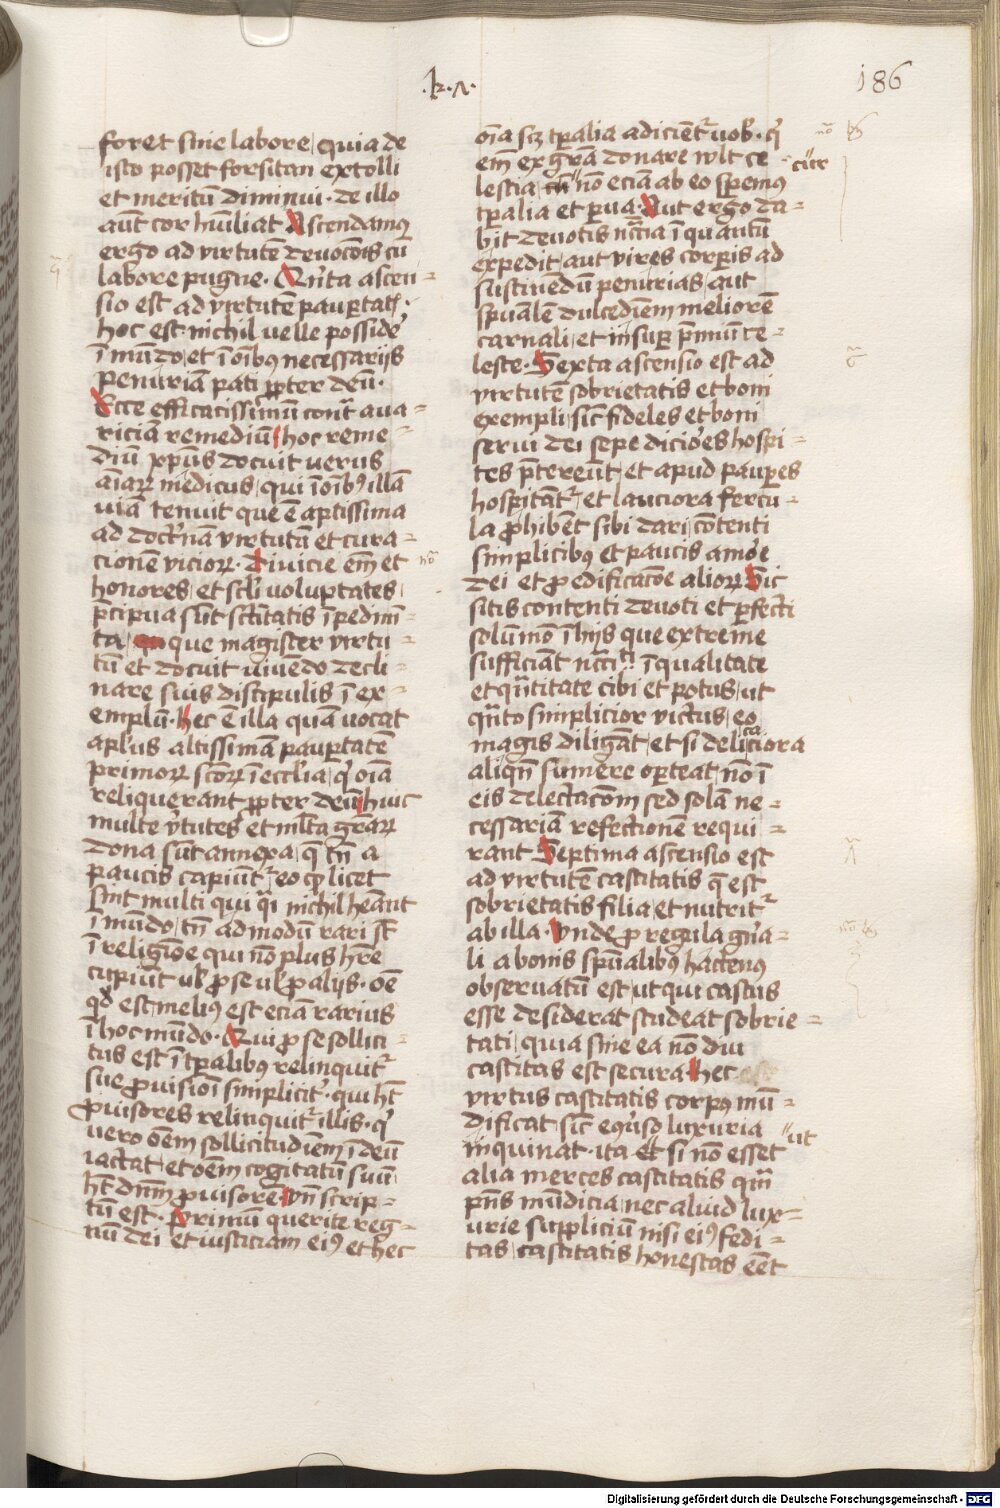 .k.ʌ.
186
foret sine labore, quia de
isto posset forsitan extolli
et meritū diminui. de illo
aūt cor hūiliat Ascendamus
ergo ad virtutē deuocōis cū
labore pugne. Qūīta ascen=
sio est ad virtutē paupertatꝭ.
hoc est nichil uelle posside᷑
ī mūdo, et ī oībus necessarijs
penuriā pati ꝓpter deū.
Ecce efficatissimū contᵃ aua=
riciā remediū, hoc reme=
diū xp̄us docuit uerus
aīaꝝ medicus, qui ī oībꝰ illā
uiā tenuit que ē aptissima
ad doct'nā virtutū et cura=
cionē vicioꝝ. Diuicie em̄ et
honores, et sc̄li uoluptates,
p̄cipua sūt sc̄titatis īpedim̄=
ta, que magister virtu=
tū et docuit uiuēdo decli=
nare suis discipulis ī ex=
emplū. Hec ē illa quā uocat
apl̄us altissimā paupertatē
primoꝝ sc̄oꝝ ī eccl̄ia, qͥ oīa
reliquerant ꝓpter deū, huic
multe v̓tutes et ml̄ta gr̄aꝝ
dona sūt annexa, q̄ tn̄ a
paucis capiūt᷑, eo qꝫ licet
sint multi qui qͣi nichil hēant
ī mūdo, tn̄ admodū rari sūt
ī religiōe qui nō plus hr̄e
cupiūt ul̓ ꝓ se ul̓ ꝓ alijs. oē
qd̓ est melius est eciā rarius
ī hoc mūdo. Qui ꝓ se sollici=
tus est ī tp̄alibus relinquit᷑
sue ꝓuisioī simplicit̓. qui ht̄
ꝓuisores relinquit᷑ illis. qͥ
uero oēm sollicitudīem ī deū
iactat, et oēm cogitatū suū
ht̄ dn̄m ꝓuisorē, vn̄ scrip=
tū est. Primū querite reg=
nū dei et iusticiam eiꝰ et hec
oīa sꝫ tp̄alia adicient᷑ uob̓. qͥ
em̄ ex gr̄a donare wlt ce=
lestia cur nō eciā ab eo sp̄emꝰ
tp̄alia et parua. Aut ergo da=
bit deuotis nccīa ī quantū
expedit, aut vires corp̄is ad
sustinēdū penurias, aut
sp̄ualē dulcedīem meliorē
carnali, et insuper p̄miū ce=
leste. Sexta ascensio est ad
virtutē sobrietatis et boni
exempli, sic̄ fideles et boni
serui dei sepe dicioēs hospi=
tes p̄tereūt, et apud pauperes
hospitāt᷑, et lauciora fercu=
la ꝓhibēt sibi dari, cōtenti
simplicibꝰ et paucis amōe
dei et ꝓ edificacōe alioꝝ. Sic
sitis contenti deuoti et p̄fecti
solūmō ī hijs que extreme
sufficiāt nccīti ī qualitate
et qn̄titate cibi et potus, ut
qn̄to simplicior victus, eo
magis diligāt, et si deliciora
ca
aliqn̄ sumere oporteat, nō ī
eis delectacōm sed solā ne=
cessariā refectionē requi=
rant. Septima ascensio est
ad virtutē castitatis q̄ est
sobrietatis filia, et nutrit᷑
ab illa. Vnde ꝓ regula gn̄a=
li a bonis sp̄ualibꝰ hactenꝰ
obseruatū est, ut qui castus
esse desiderat studeat sobrie=
tati, quia sine ea nō diu
castitas est secura. Hec
virtus castitatis corpꝰ mū=
dificat sic̄ ecōuerso luxuria ut
inquinat. ita et si nō esset
alia merces castitatis qm̄
pn̄s mūdicia, nec aliud lux=
urie suppliciū nisi eiꝰ fedi=
tas, castitatis honestas eēt
Digitalisierung gefördert durch die Deutsche Forschungsgemeinschaft - DFG